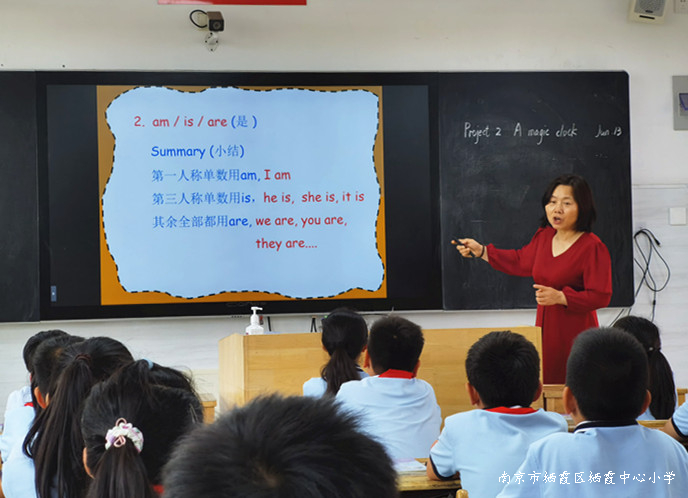 2. am / is / are (是 )
Summary (小结)
第一人称单数用am, I am
第三人称单数用is，he is, she is, it is
其余全部都用are, we are, you are,
they are....
Project 2 A magic clock Jun. 13
南京市栖霞区栖霞中心小学